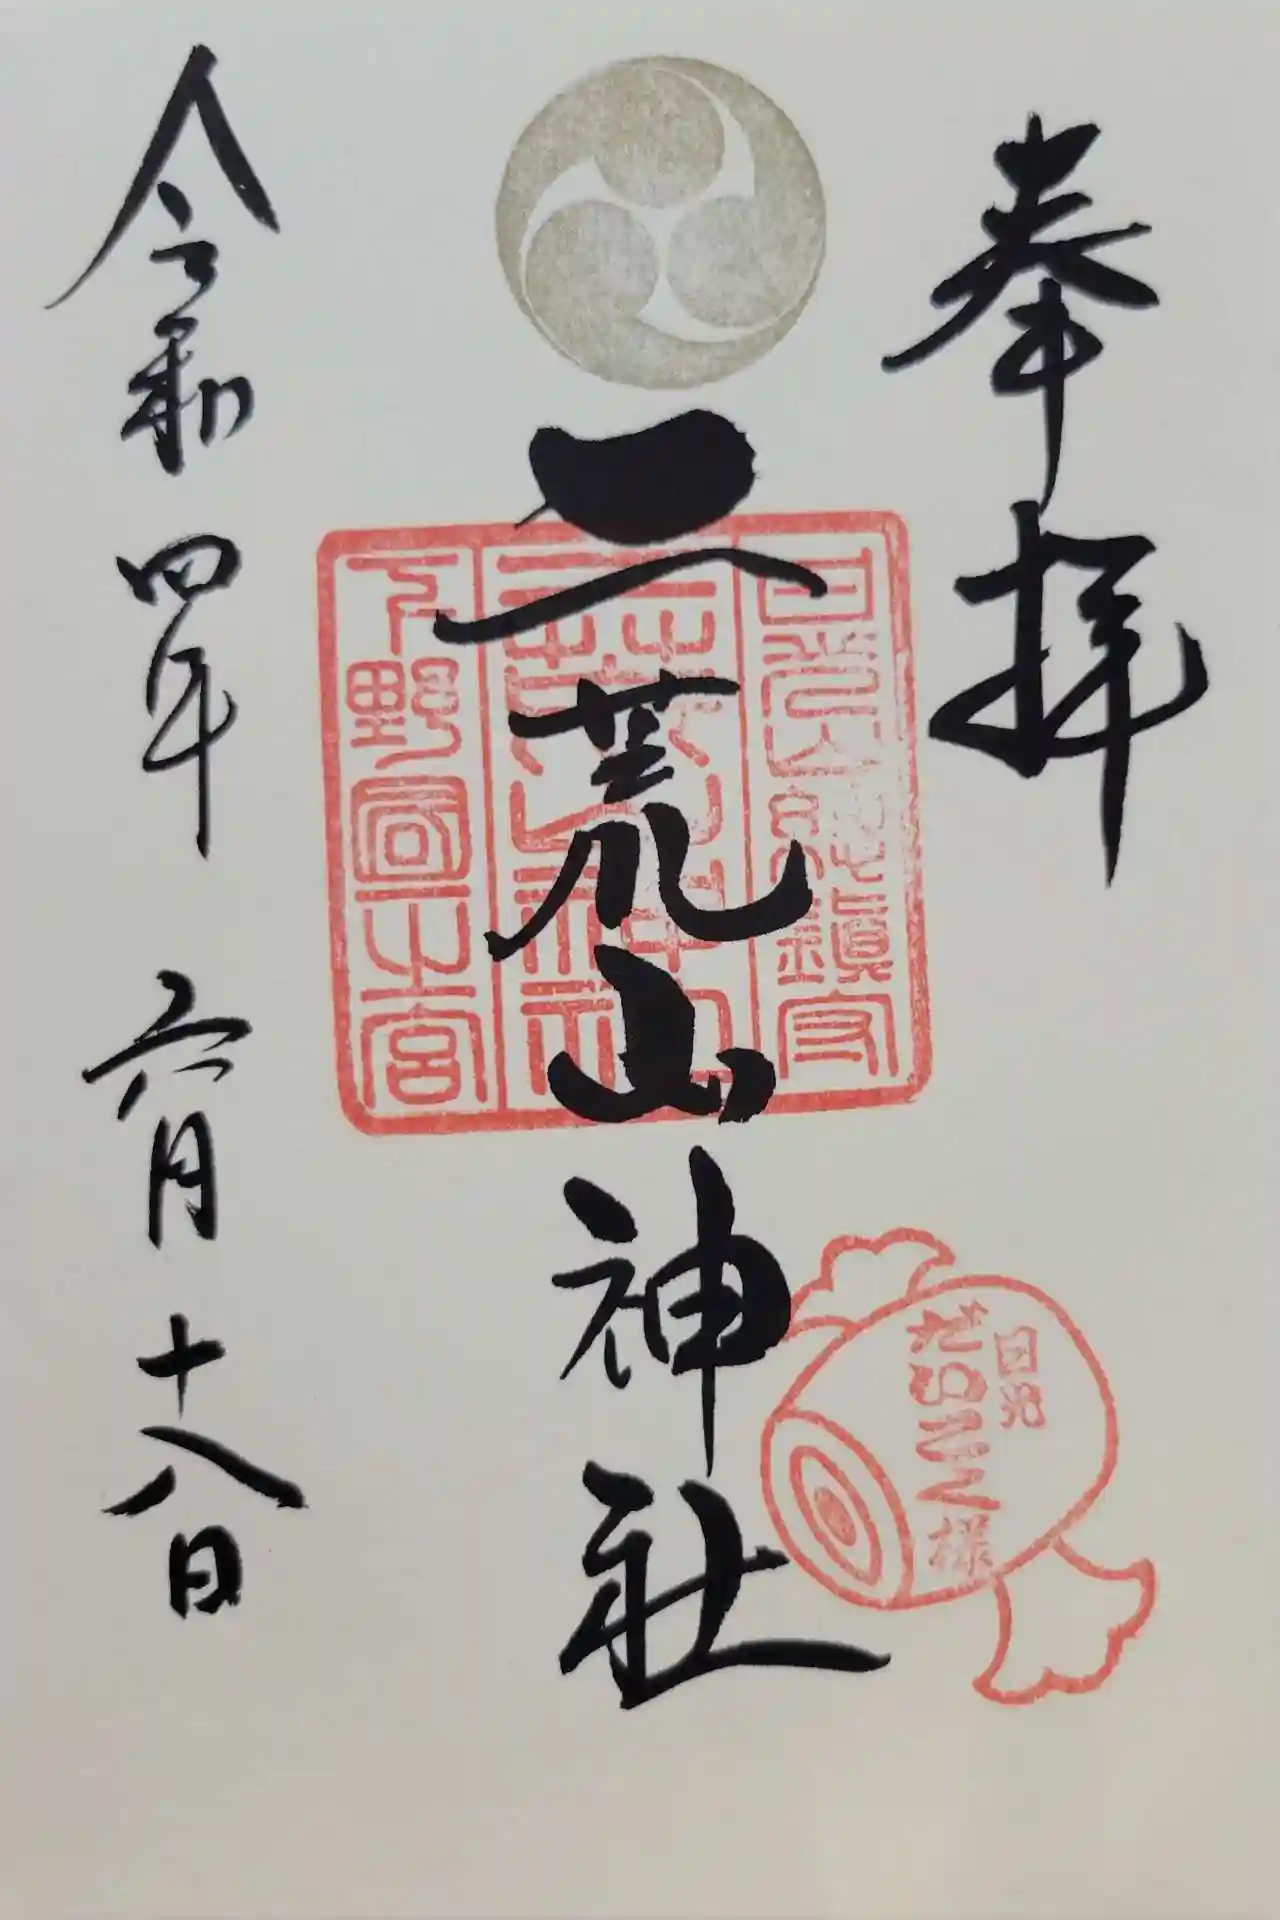 奉拝
日光山総鎮守
二荒山神社
二荒山神社
下野国一之宮
日光
だいこく様
令和四年 六月十八日